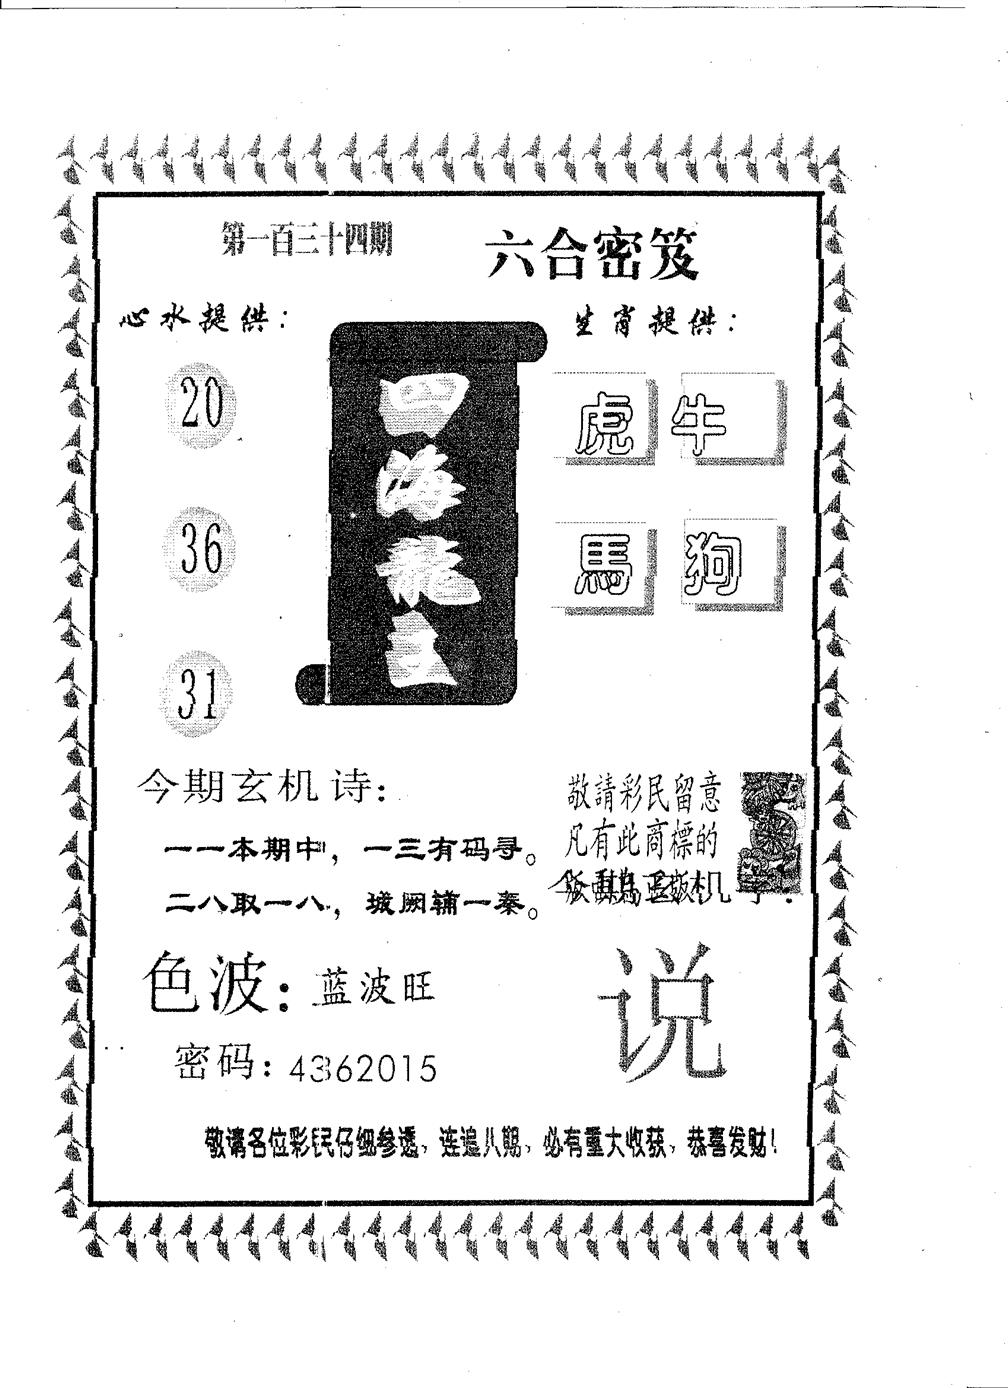 第一百三十四期
六合密笈
心水提供：
20
36
31
四
生肖提供：
虎 牛
馬 狗
今期玄机诗：
一一本期中，一三有码寻。
二八取一八，城阙辅一秦。
敬請彩民留意
凡有此商標的
色波：蓝波旺
密码：4362015
说
敬请各位彩民仔细参透，连追八期，必有重大收获，恭喜发财！